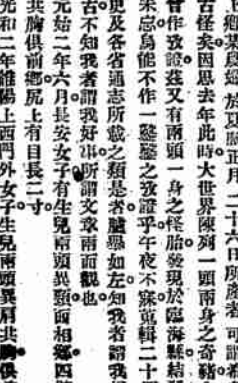 於夏曆正月二十六日所產者可謂希
古怪矣因思去年此時大世界陳列一頭兩身之奇豬
曾作攷證茲又有兩頭一身之怪胎發現於臨海縣結
未忘烏能不作一鼟鼟之攷證乎午夜不寐蒐輯二十
更及各省通志所載之類是者臚舉如左知我者謂我
古不知我者謂我好事所謂文章兩面觀也
元始二年六月長安女子有生兒兩頭異頸面相鄉四
共胸俱前鄉尻上有目長二寸
光和二年雒陽上西門外女子生兒兩頭異肩共胸俱